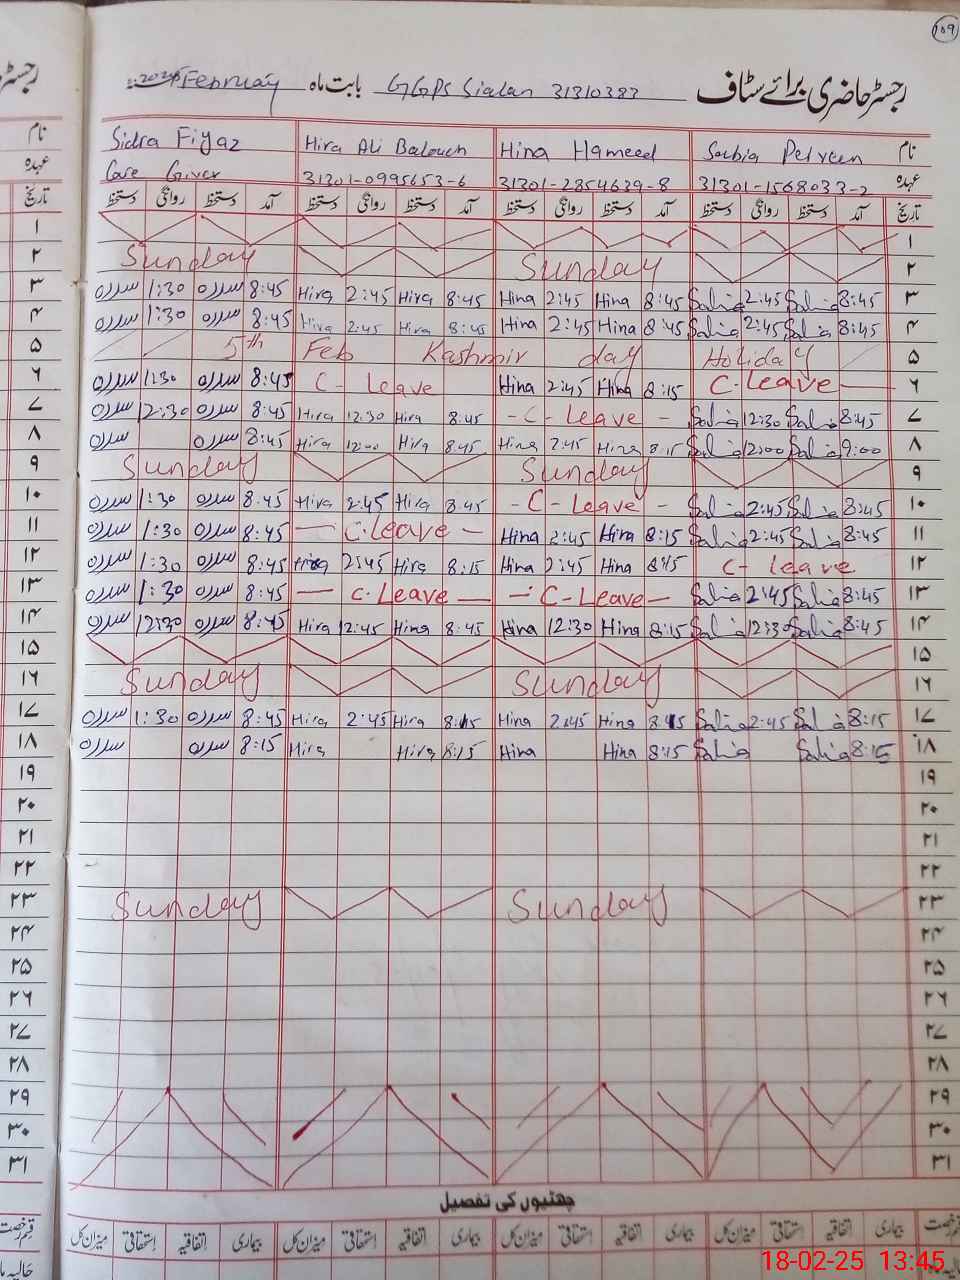 109
رجسٹر حاضری برائے سٹاف GGPS Sialan 31310383 بابت ماہ February
نام Sidra Fiyaz Hira Ali Balouch Hina Hameed Saibia Perveen نام
عہدہ Care Giver 31301-0995653-6 31301-2854639-8 31301-1568033-2 عہدہ
تاریخ دستخط روانگی دستخط آمد دستخط روانگی دستخط آمد دستخط روانگی دستخط آمد دستخط روانگی دستخط آمد تاریخ
۱ ۱
۲ Sunday Sunday ۲
۳ سدرہ 1:30 سدرہ 8:45 Hira 2:45 Hira 8:45 Hina 2:45 Hina 8:45 2:45 8:45 ۳
۴ سدرہ 1:30 سدرہ 8:45 Hira 2:45 Hira 8:45 Hina 2:45 Hina 8:45 2:45 8:45 ۴
۵ 5th Feb Kashmir day Holiday ۵
۶ سدرہ 1:30 سدرہ 8:45 C-Leave Hina 2:45 Hina 8:15 C-Leave ۶
۷ سدرہ 12:30 سدرہ 8:45 Hira 12:30 Hira 8:45 -C-Leave- 12:30 8:45 ۷
۸ سدرہ سدرہ 8:45 Hira 12:00 Hira 8:45 Hina 2:45 Hina 8:15 12:00 9:00 ۸
۹ Sunday Sunday ۹
۱۰ سدرہ 1:30 سدرہ 8:45 Hira 2:45 Hira 8:45 -C-Leave- 2:45 8:45 ۱۰
۱۱ سدرہ 1:30 سدرہ 8:45 — C.Leave — Hina 2:45 Hina 8:15 2:45 8:45 ۱۱
۱۲ سدرہ 1:30 سدرہ 8:45 Hira 2:45 Hira 8:15 Hina 2:45 Hina 8:15 C- leave ۱۲
۱۳ سدرہ 1:30 سدرہ 8:45 — C.Leave — — C-Leave — 2:45 8:45 ۱۳
۱۴ سدرہ 12:30 سدرہ 8:45 Hira 12:45 Hira 8:45 Hina 12:30 Hina 8:15 12:30 8:45 ۱۴
۱۵ ۱۵
۱۶ Sunday Sunday ۱۶
۱۷ سدرہ 1:30 سدرہ 8:45 Hira 2:45 Hira 8:15 Hina 2:45 Hina 8:15 2:45 8:15 ۱۷
۱۸ سدرہ سدرہ 8:15 Hira Hira 8:15 Hina Hina 8:15 8:15 ۱۸
۱۹ ۱۹
۲۰ ۲۰
۲۱ ۲۱
۲۲ ۲۲
۲۳ Sunday Sunday ۲۳
۲۴ ۲۴
۲۵ ۲۵
۲۶ ۲۶
۲۷ ۲۷
۲۸ ۲۸
۲۹ ۲۹
۳۰ ۳۰
۳۱ ۳۱
چھٹیوں کی تفصیل
قسم رخصت بیماری اتفاقیہ استحقاقی میزان کل بیماری اتفاقیہ استحقاقی میزان کل بیماری اتفاقیہ استحقاقی میزان کل بیماری اتفاقیہ استحقاقی میزان کل
حالیہ ماہ
18-02-25 13:45